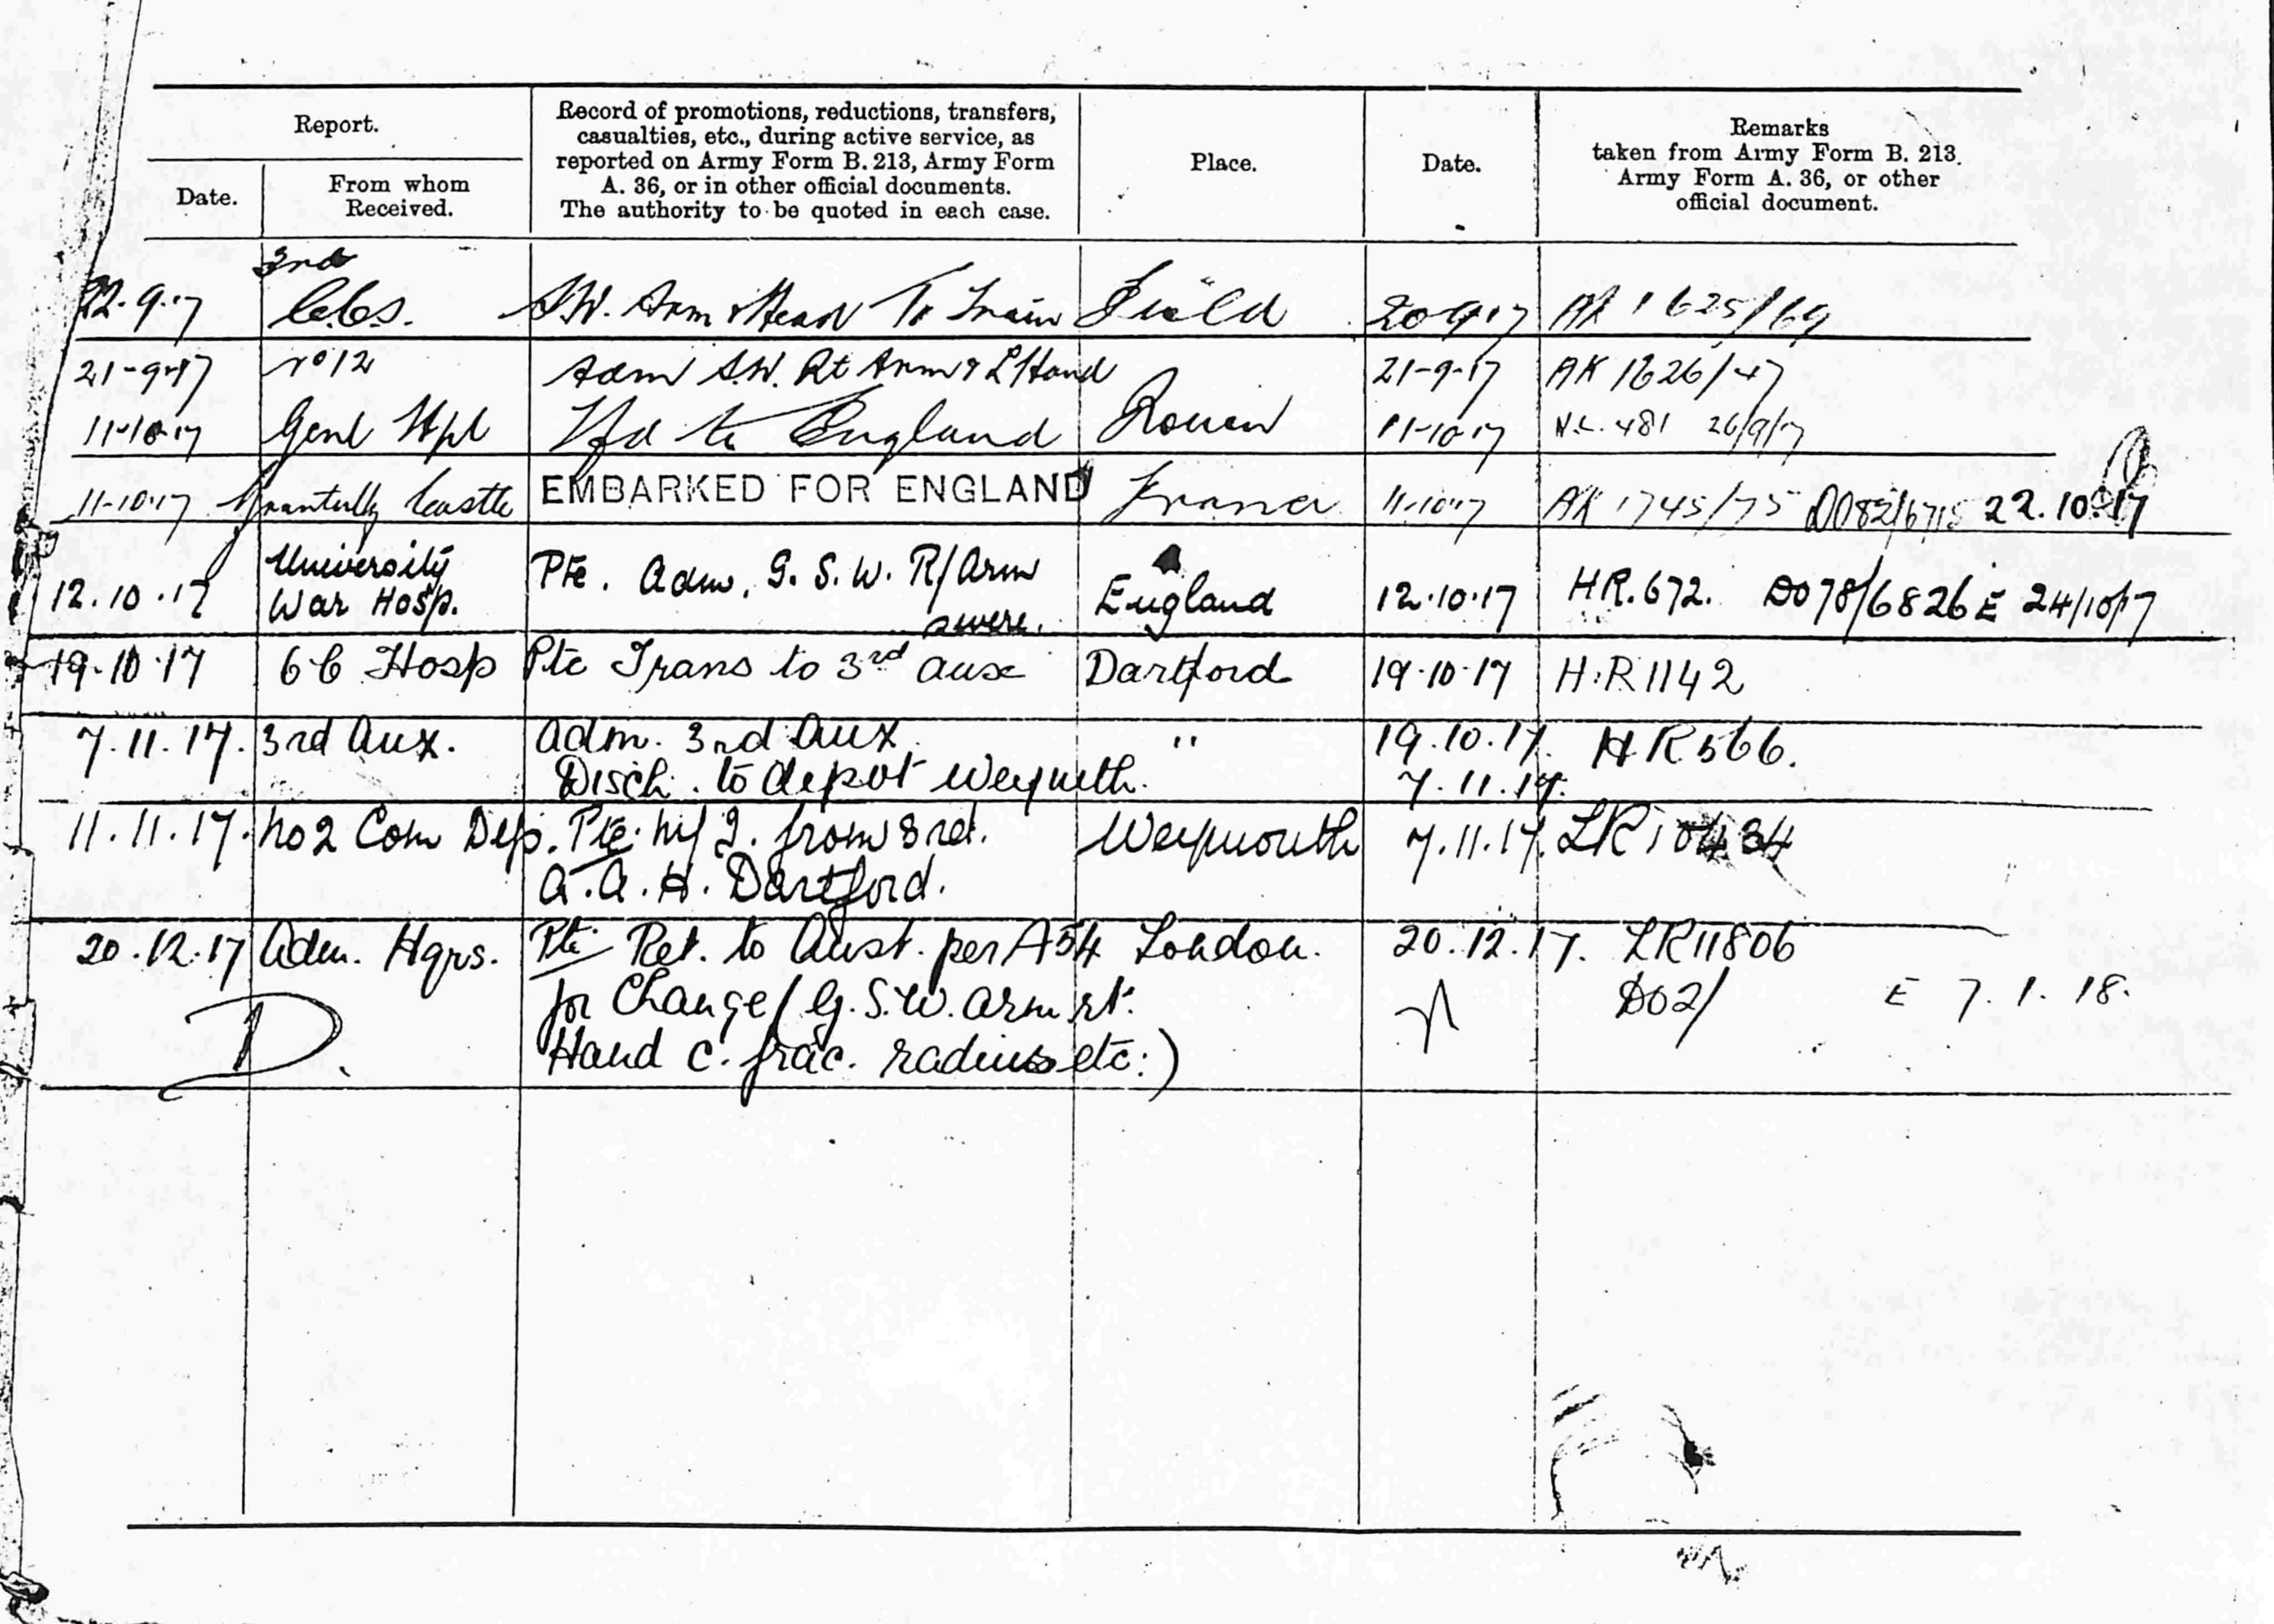 Report.
Record of promotions, reductions, transfers,
casualties, etc., during active service, as
reported on Army Form B. 213, Army Form
A. 36, or in other official documents.
The authority to be quoted in each case.
Place.
Date.
Remarks
taken from Army Form B. 213,
Army Form A. 36, or other
official document.
Date.
From whom
Received.
3rd
22.9.17 C.C.S. S.W. Arm & Head To Train Field 20.9.17 AK 1625/69
21-9-17 No 12 Adm S.W. Rt Arm & L/Hand 21-9-17 AK 1626/47
11-10-17 Genl Hpl Tfd to England Rouen 11-10-17 N.L. 481 26/9/17
11-10-17 Grantully Castle EMBARKED FOR ENGLAND France 11.10.17 AK 1745/75 22.10.17
12.10.17 University
War Hosp. Pte. Adm. G.S.W. R/Arm
severe. England 12.10.17 HR.672. DO78/6826 E 24/10/17
19.10.17 Hosp Pte Trans to 3rd Aux Dartford 19.10.17 H.R 1142
7.11.17. 3rd Aux. Adm. 3rd Aux. " 19.10.17. HR566.
Disch. to depot Weymth. 7.11.17.
11.11.17. No 2 Com Dep. Pte. from 3rd. Weymouth 7.11.17.
A.A.H. Dartford.
20.12.17 Adm. Hqrs. Pte Ret. to Aust. per A54 London. 20.12.17. LR11806
for Change (G.S.W. arm rt. DO2/ E 7.1.18.
Hand c. frac. radius etc.)
D.